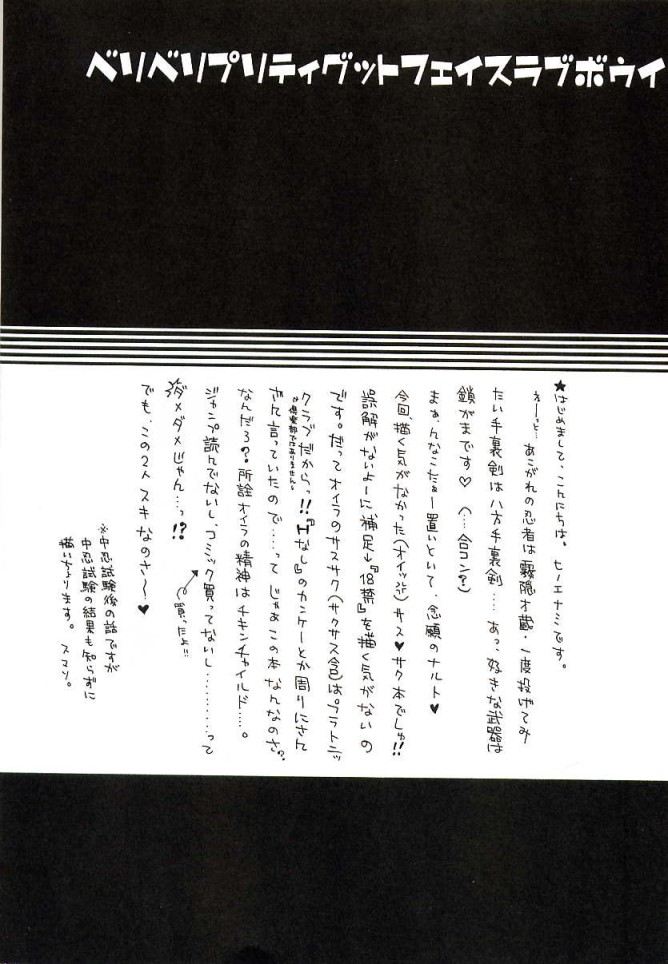 ベリベリプリティグットフェイスラブボウイ
★はじめまして、こんにちは。ヒーエナミです。
えーっと…あこがれの忍者は霧隠才蔵・一度投げてみ
たい手裏剣は八方手裏剣……あっ、好きな武器は
鎖がまです♡(…合コン?)
まぁ、んなこたぁー置いといて、念願のナルト♥
今回、描く気がなかった(オイッ)サス♥サク本でしゅ!!
誤解がないよーに補足→『18禁』を描く気がないの
です。だってオイラのサスサク(サクサス含)はプラトニッ
クラブだからっ!!『Hなし』のカンケーとか周りにさん
↑倶楽部ではありません。
ざん言っていたので……って じゃぁこの本 なんなのさ?
なんだろ?所詮オイラの精神は チキンチャイルド……。
ジャンプ読んでないし、コミック買ってないし…………って
ダメダメじゃん…っ!?
買ったよ!!
でも、この2人 スキ なのさ〜♥
※中忍試験後の話ですが
中忍試験の結果も知らずに
描いちょります。スマソ。